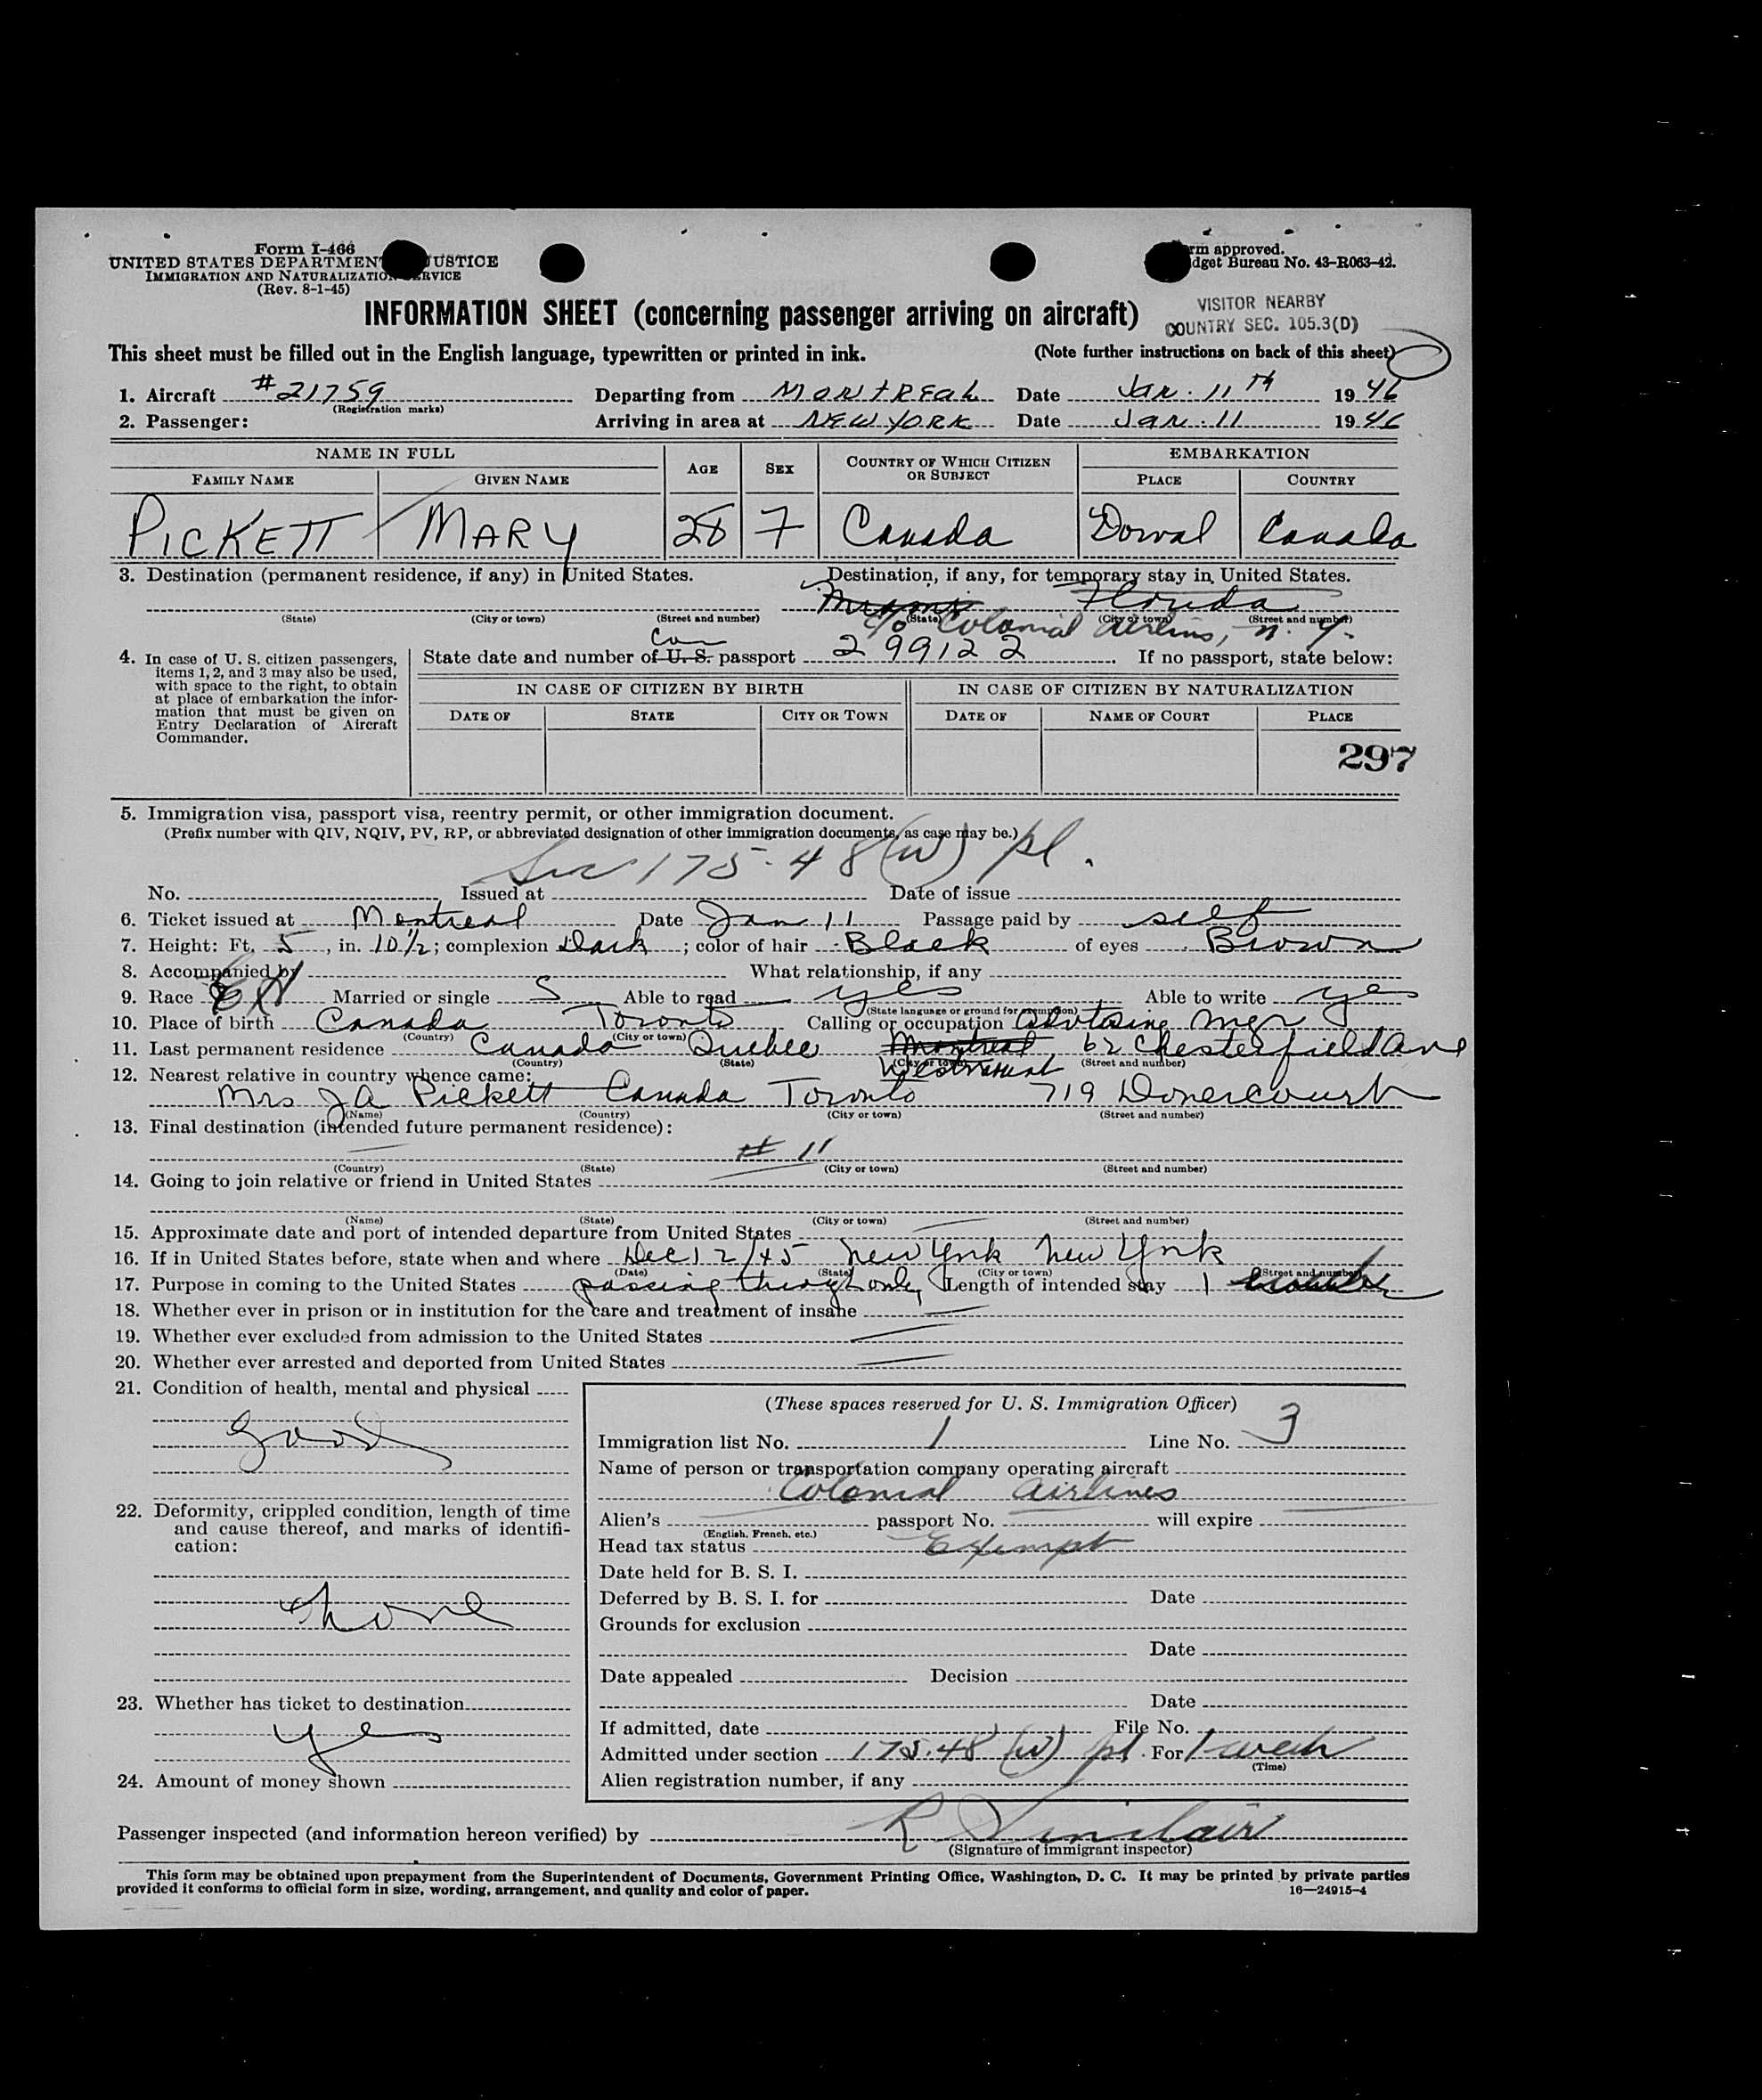 Form I-466
UNITED STATES DEPARTMENT JUSTICE
IMMIGRATION AND NATURALIZATION SERVICE
(Rev. 8-1-45)
rm approved.
dget Bureau No. 43-R063-42.
INFORMATION SHEET (concerning passenger arriving on aircraft)
VISITOR NEARBY
COUNTRY SEC. 105.3(D)
This sheet must be filled out in the English language, typewritten or printed in ink. (Note further instructions on back of this sheet)
1. Aircraft #21759 Departing from MONTREAL Date Jan. 11th 1946
(Registration marks)
2. Passenger: Arriving in area at NEW YORK Date Jan. 11 1946
NAME IN FULL AGE SEX COUNTRY OF WHICH CITIZEN OR SUBJECT EMBARKATION
FAMILY NAME GIVEN NAME PLACE COUNTRY
PICKETT MARY 28 F Canada Dorval Canada
3. Destination (permanent residence, if any) in United States. Destination, if any, for temporary stay in United States.
Miami Florida
(State) (City or town) (Street and number) (State) (City or town) (Street and number)
c/o Colonial Airlines, N. Y.
Can
4. In case of U. S. citizen passengers, items 1, 2, and 3 may also be used, with space to the right, to obtain at place of embarkation the information that must be given on Entry Declaration of Aircraft Commander.
State date and number of U. S. passport 299122 If no passport, state below:
IN CASE OF CITIZEN BY BIRTH IN CASE OF CITIZEN BY NATURALIZATION
DATE OF STATE CITY OR TOWN DATE OF NAME OF COURT PLACE
297
5. Immigration visa, passport visa, reentry permit, or other immigration document.
(Prefix number with QIV, NQIV, PV, RP, or abbreviated designation of other immigration documents, as case may be.)
Sec 175.48(W) pl.
No. Issued at Date of issue
6. Ticket issued at Montreal Date Jan 11 Passage paid by self
7. Height: Ft. 5, in. 10 1/2; complexion Dark; color of hair Black of eyes Brown
8. Accompanied by What relationship, if any
9. Race Married or single S Able to read yes Able to write yes
(State language or ground for exemption)
10. Place of birth Canada Toronto Calling or occupation Advtising Mgr
(Country) (City or town)
11. Last permanent residence Canada Quebec Montreal 62 Chesterfield Ave
(Country) (State) (City or town) (Street and number)
Westmount
12. Nearest relative in country whence came:
Mrs JA Pickett Canada Toronto 719 Dovercourt
(Name) (Country) (City or town) (Street and number)
13. Final destination (intended future permanent residence):
# 11
(Country) (State) (City or town) (Street and number)
14. Going to join relative or friend in United States
(Name) (State) (City or town) (Street and number)
15. Approximate date and port of intended departure from United States
16. If in United States before, state when and where Dec 12/45 New York New York
(Date) (State) (City or town) (Street and number)
17. Purpose in coming to the United States passing through only Length of intended stay 1
18. Whether ever in prison or in institution for the care and treatment of insane
19. Whether ever excluded from admission to the United States
20. Whether ever arrested and deported from United States
21. Condition of health, mental and physical
good
22. Deformity, crippled condition, length of time and cause thereof, and marks of identification:
none
23. Whether has ticket to destination
yes
24. Amount of money shown
(These spaces reserved for U. S. Immigration Officer)
Immigration list No. 1 Line No. 3
Name of person or transportation company operating aircraft
Colonial Airlines
Alien's passport No. will expire
(English, French, etc.)
Head tax status Exempt
Date held for B. S. I.
Deferred by B. S. I. for Date
Grounds for exclusion
Date
Date appealed Decision
Date
If admitted, date File No.
Admitted under section 175.48 (W) pl. For 1 week
(Time)
Alien registration number, if any
Passenger inspected (and information hereon verified) by R Sinclair
(Signature of immigrant inspector)
This form may be obtained upon prepayment from the Superintendent of Documents, Government Printing Office, Washington, D. C. It may be printed by private parties
provided it conforms to official form in size, wording, arrangement, and quality and color of paper. 16—24915-4